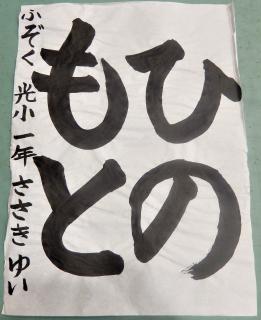 ひの
もと
ふぞく光小一年ささきゆい